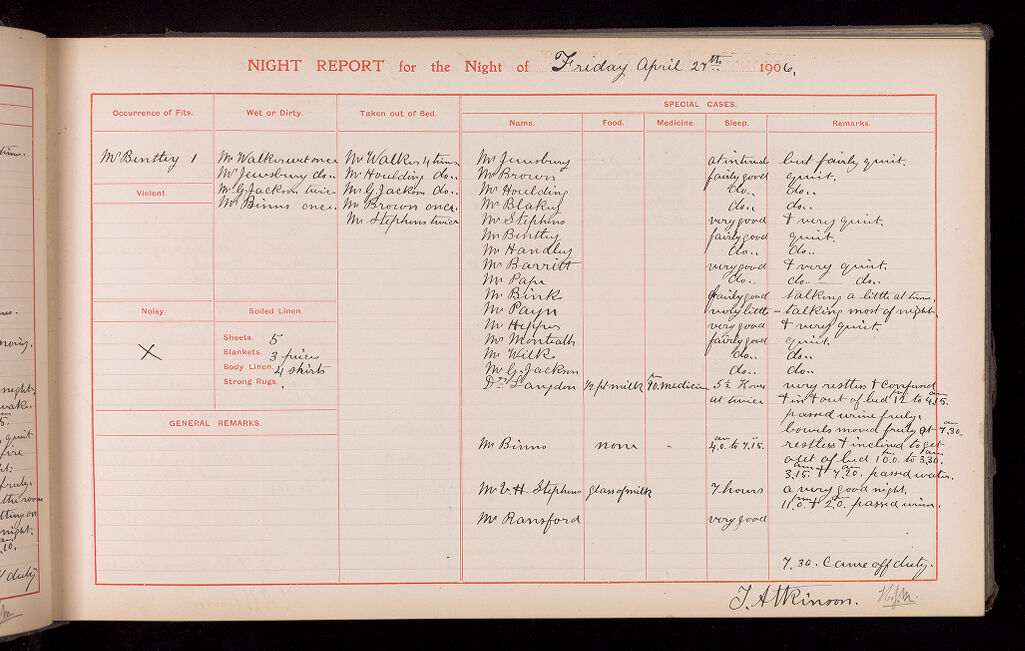 NIGHT REPORT for the Night of Friday April 27th 1906.
Occurrence of Fits.
Mr Bentley 1
Violent.
Noisy.
X
Wet or Dirty.
Mr Walker wet once
Mr Jewsbury do..
Mr G. Jackson twice
Mr Binns once
Soiled Linen.
Sheets. 5
Blankets. 3 pieces
Body Linen. 4 shirts
Strong Rugs.
Taken out of Bed.
Mr Walker 4 times
Mr Houlding do..
Mr G. Jackson do..
Mr Brown once.
Mr Stephens twice
GENERAL REMARKS.
SPECIAL CASES.
Name. Food. Medicine. Sleep. Remarks.
Mr Jewsbury at interval but fairly quiet.
Mr Brown fairly good quiet.
Mr Houlding do.. do..
Mr Blakey do.. do..
Mr Stephens very good & very quiet.
Mr Bentley fairly good quiet.
Mr Handley do.. do..
Mr Barritt very good & very quiet.
Mr Pape do.. do.. do..
Mr Binks fairly good talking a little at times.
Mr Payn very little - talking most of night
Mr Hepper very good & very quiet.
Mr Monteath fairly good quiet.
Mr Wilks do.. do..
Mr G. Jackson do.. do..
Dr Langdon ½ pt milk medicine 5½ Hours very restless & confused
at twice & in & out of bed 12 to 4.15.
passed urine freely.
bowels moved freely at 7.30.
Mr Binns none - 4.0. to 7.15. restless & inclined to get
out of bed 10.0. to 3.30.
3.15. & 7.20. passed water.
Mr V H Stephens glass of milk 7 hours a very good night.
11.0. & 2.0. passed urine.
Mr Ransford very good
7.30. Came off duty.
T. Atkinson. H.J.M.